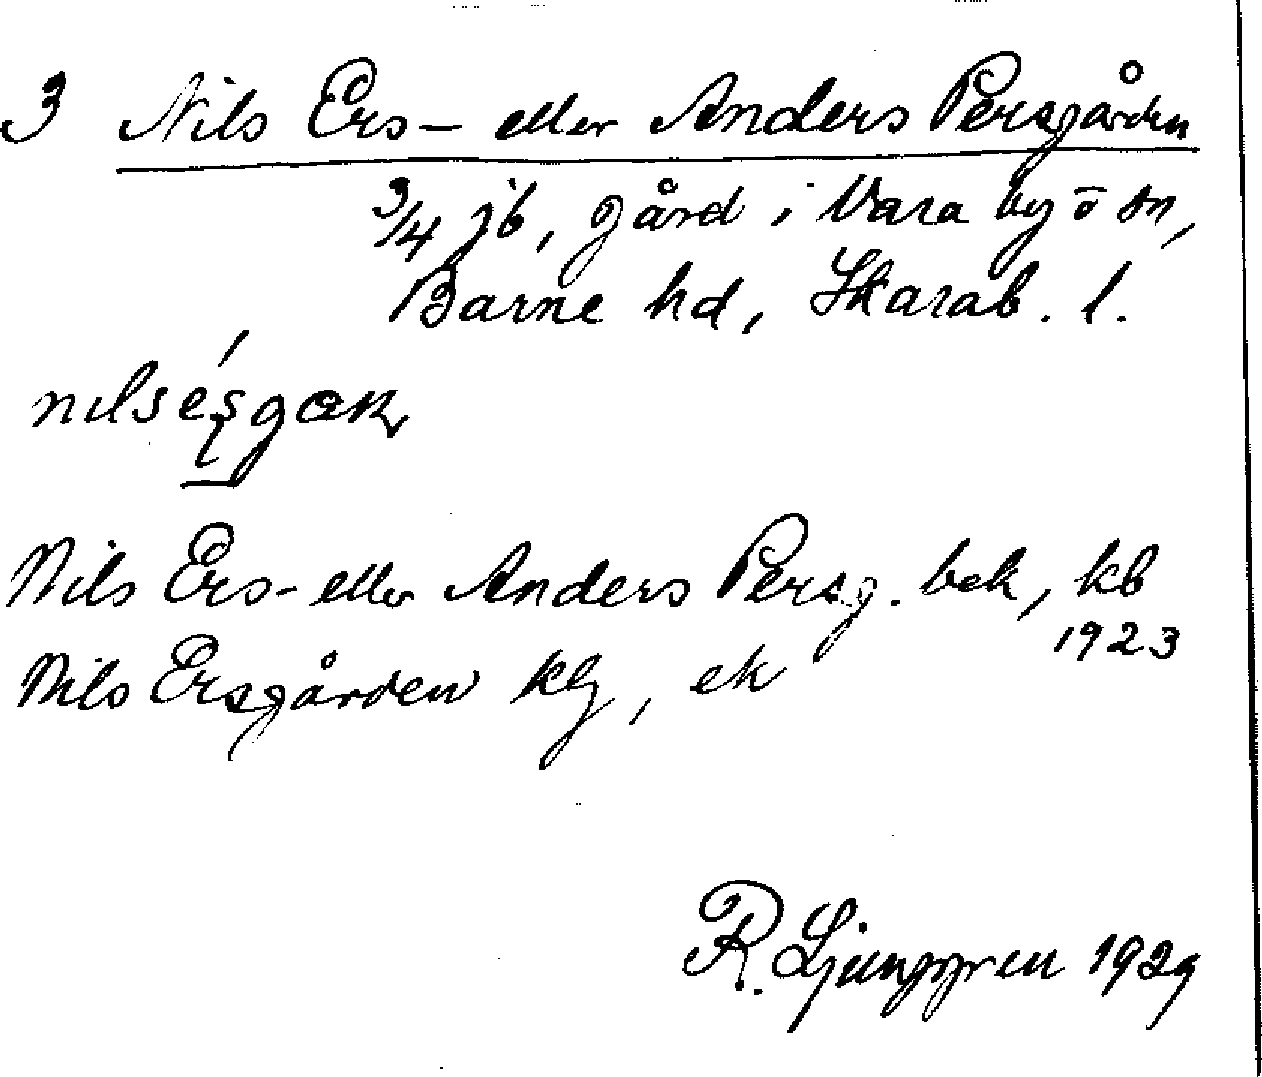 3 Nils Ers- eller Anders Persgården
3/4 jb, gård i Vara by o sn,
Barne hd, Skarab. l.
Nils Ers- eller Anders Persg. bek, kb
1923
Nils Ersgården klj, ek
R. Ljunggren 1929